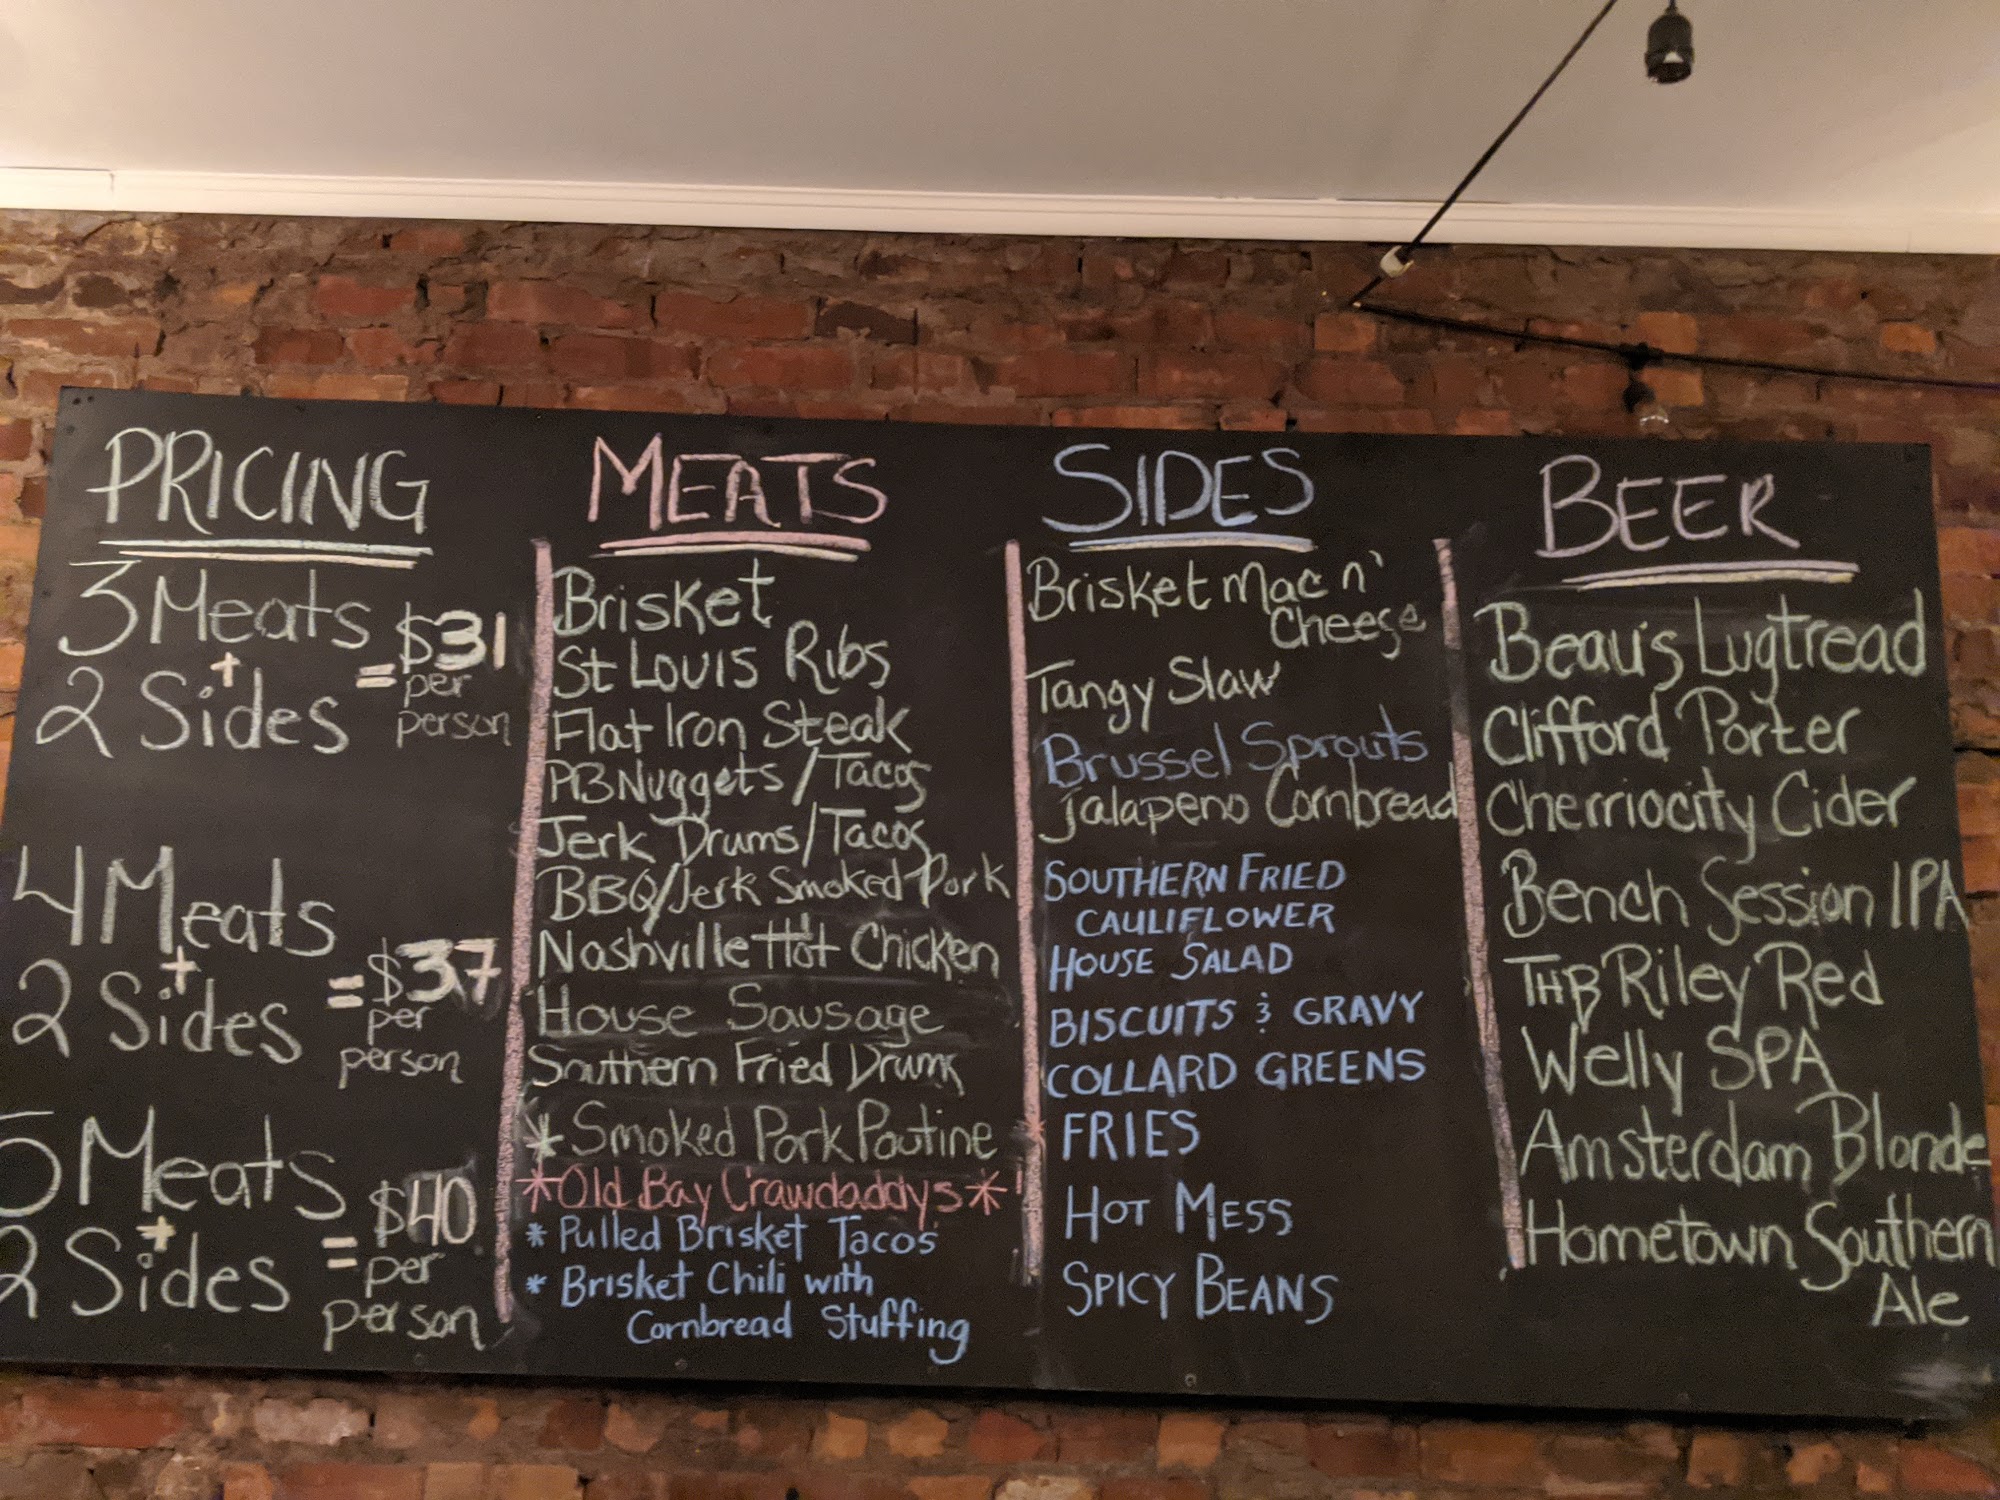 PRICING
3 Meats
+
2 Sides
= $31
per
person
4 Meats
+
2 Sides
= $37
per
person
5 Meats
+
2 Sides
= $40
per
person
MEATS
Brisket
St Louis Ribs
Flat Iron Steak
PB Nuggets/Tacos
Jerk Drums/Tacos
BBQ/Jerk Smoked Pork
Nashville Hot Chicken
House Sausage
Southern Fried Drums
* Smoked Pork Poutine
*Old Bay Crawdaddys*
* Pulled Brisket Tacos
* Brisket Chili with
Cornbread Stuffing
SIDES
Brisket Mac n'
Cheese
Tangy Slaw
Brussel Sprouts
Jalapeno Cornbread
SOUTHERN FRIED
CAULIFLOWER
HOUSE SALAD
BISCUITS & GRAVY
COLLARD GREENS
* FRIES
HOT MESS
SPICY BEANS
BEER
Beau's Lugtread
Clifford Porter
Cherriocity Cider
Bench Session IPA
THB Riley Red
Welly SPA
Amsterdam Blonde
Hometown Southern
Ale